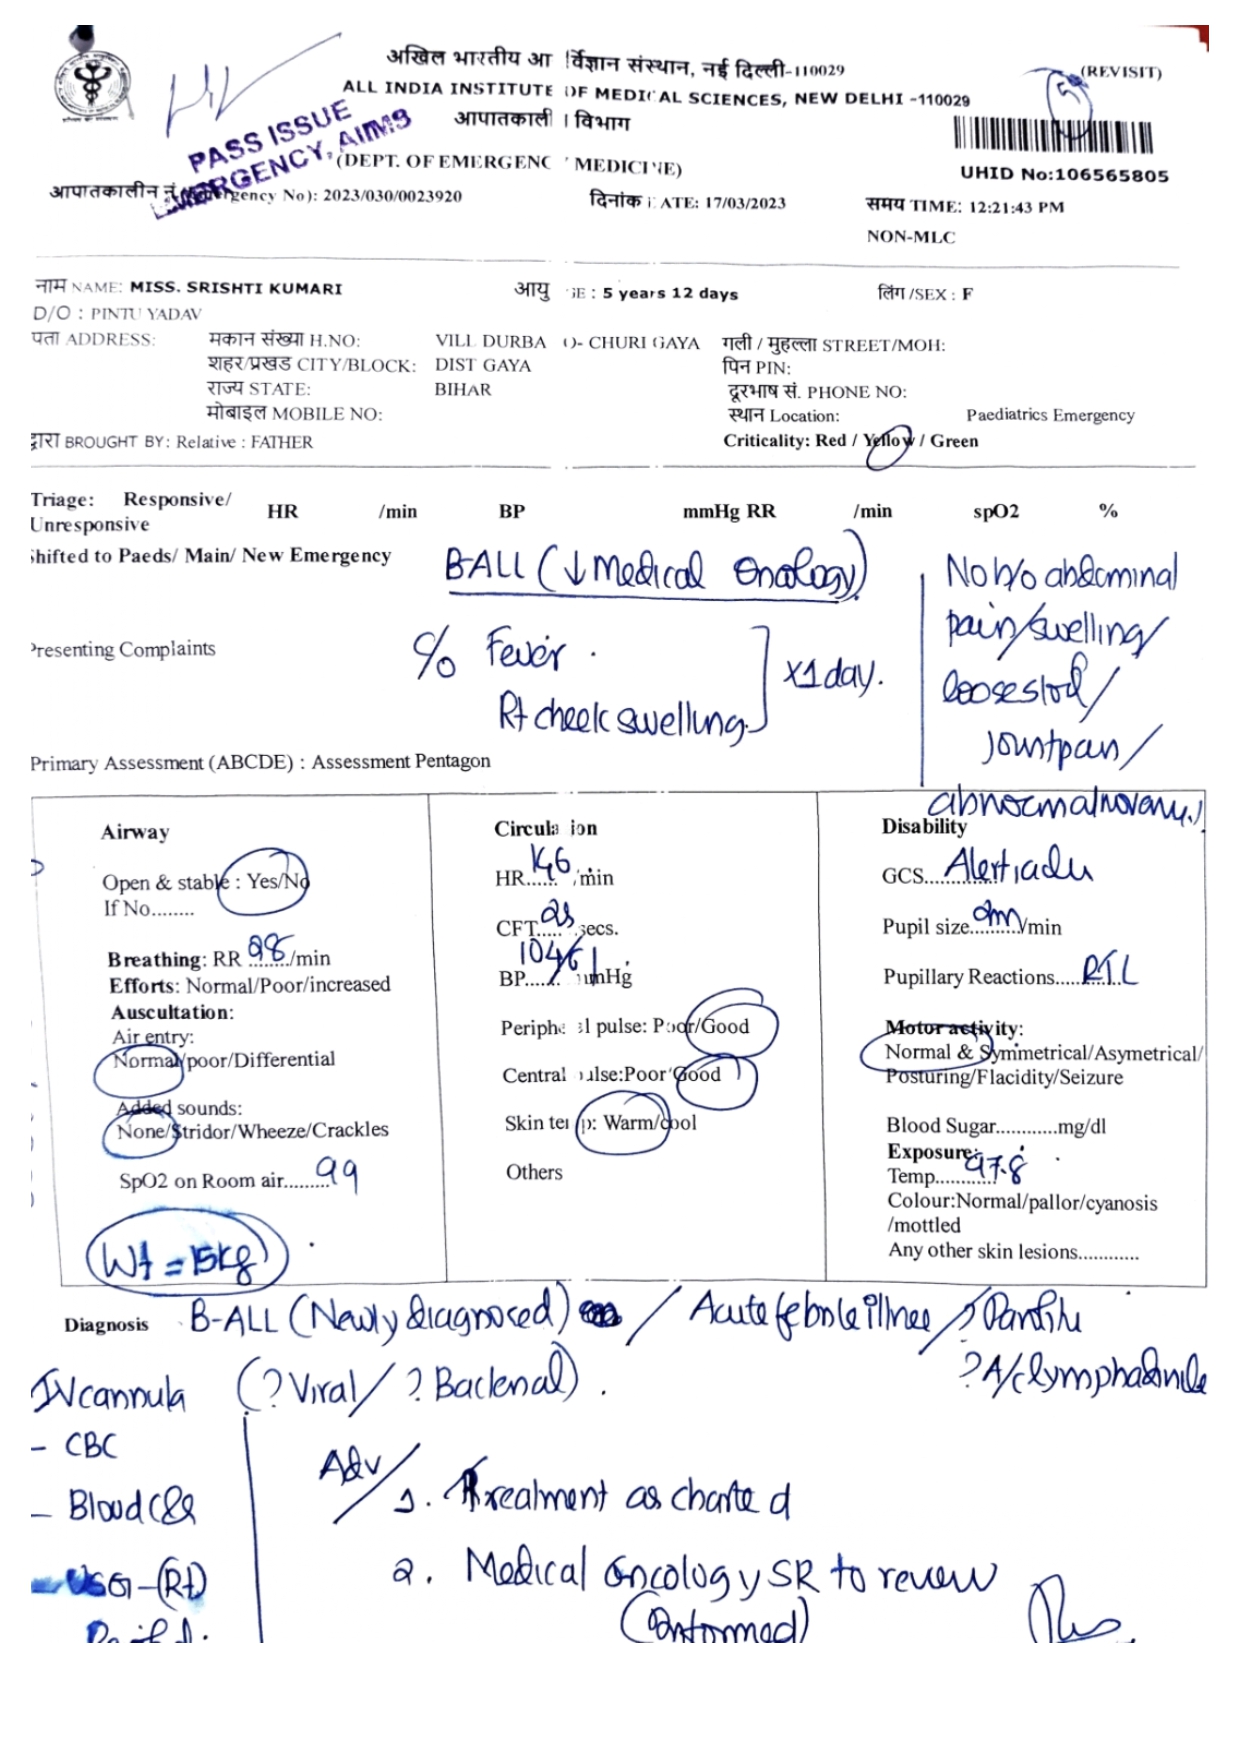 अखिल भारतीय आ र्विज्ञान संस्थान, नई दिल्ली-110029
(REVISIT)
ALL INDIA INSTITUTE OF MEDICAL SCIENCES, NEW DELHI -110029
आपातकाली विभाग
PASS ISSUE
EMERGENCY, AIIMS
(DEPT. OF EMERGENC MEDICINE)
UHID No:106565805
आपातकालीन नं (Emergency No): 2023/030/0023920 दिनांक DATE: 17/03/2023 समय TIME: 12:21:43 PM
NON-MLC
नाम NAME: MISS. SRISHTI KUMARI आयु GE : 5 years 12 days लिंग /SEX : F
D/O : PINTU YADAV
पता ADDRESS: मकान संख्या H.NO: VILL DURBA O- CHURI GAYA गली / मुहल्ला STREET/MOH:
शहर/प्रखड CITY/BLOCK: DIST GAYA पिन PIN:
राज्य STATE: BIHAR दूरभाष सं. PHONE NO:
मोबाइल MOBILE NO: स्थान Location: Paediatrics Emergency
द्वारा BROUGHT BY: Relative : FATHER Criticality: Red / Yellow / Green
Triage: Responsive/ HR /min BP mmHg RR /min spO2 %
Unresponsive
Shifted to Paeds/ Main/ New Emergency
B-ALL (↓ Medical Oncology)
No h/o abdominal
pain/swelling/
loose stool/
Joint pain/
abnormal movem.
Presenting Complaints
c/o Fever .
Rt cheek swelling
x1 day.
Primary Assessment (ABCDE) : Assessment Pentagon
Airway
Open & stable : Yes/No
If No........
Breathing: RR 28/min
Efforts: Normal/Poor/increased
Auscultation:
Air entry:
Normal/poor/Differential
Added sounds:
None/Stridor/Wheeze/Crackles
SpO2 on Room air.........99
Wt = 15kg
Circula ion
HR.....146/min
CFT.....2s secs.
BP.....104/61 mmHg
Periphe al pulse: Poor/Good
Central ulse:Poor/Good
Skin te p: Warm/cool
Others
Disability
GCS...Alert, active
Pupil size 2mm/min
Pupillary Reactions.....RTL
Motor activity:
Normal & Symimetrical/Asymetrical/
Posturing/Flacidity/Seizure
Blood Sugar............mg/dl
Exposure:
Temp...97.8
Colour:Normal/pallor/cyanosis
/mottled
Any other skin lesions............
Diagnosis B-ALL (Newly diagnosed) / Acute febrile illness / ? Parotitis
(? Viral / ? Bacterial). ? A/c lymphadenitis
IV cannula
- CBC
- Blood C&S
- USG - (Rt)
Adv/
1. Treatment as charted
2. Medical Oncology SR to review
(Informed)